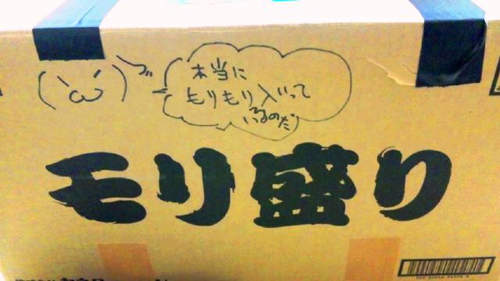 ('ω')
本当に
もりもり入って
いるのだ
モリ盛り